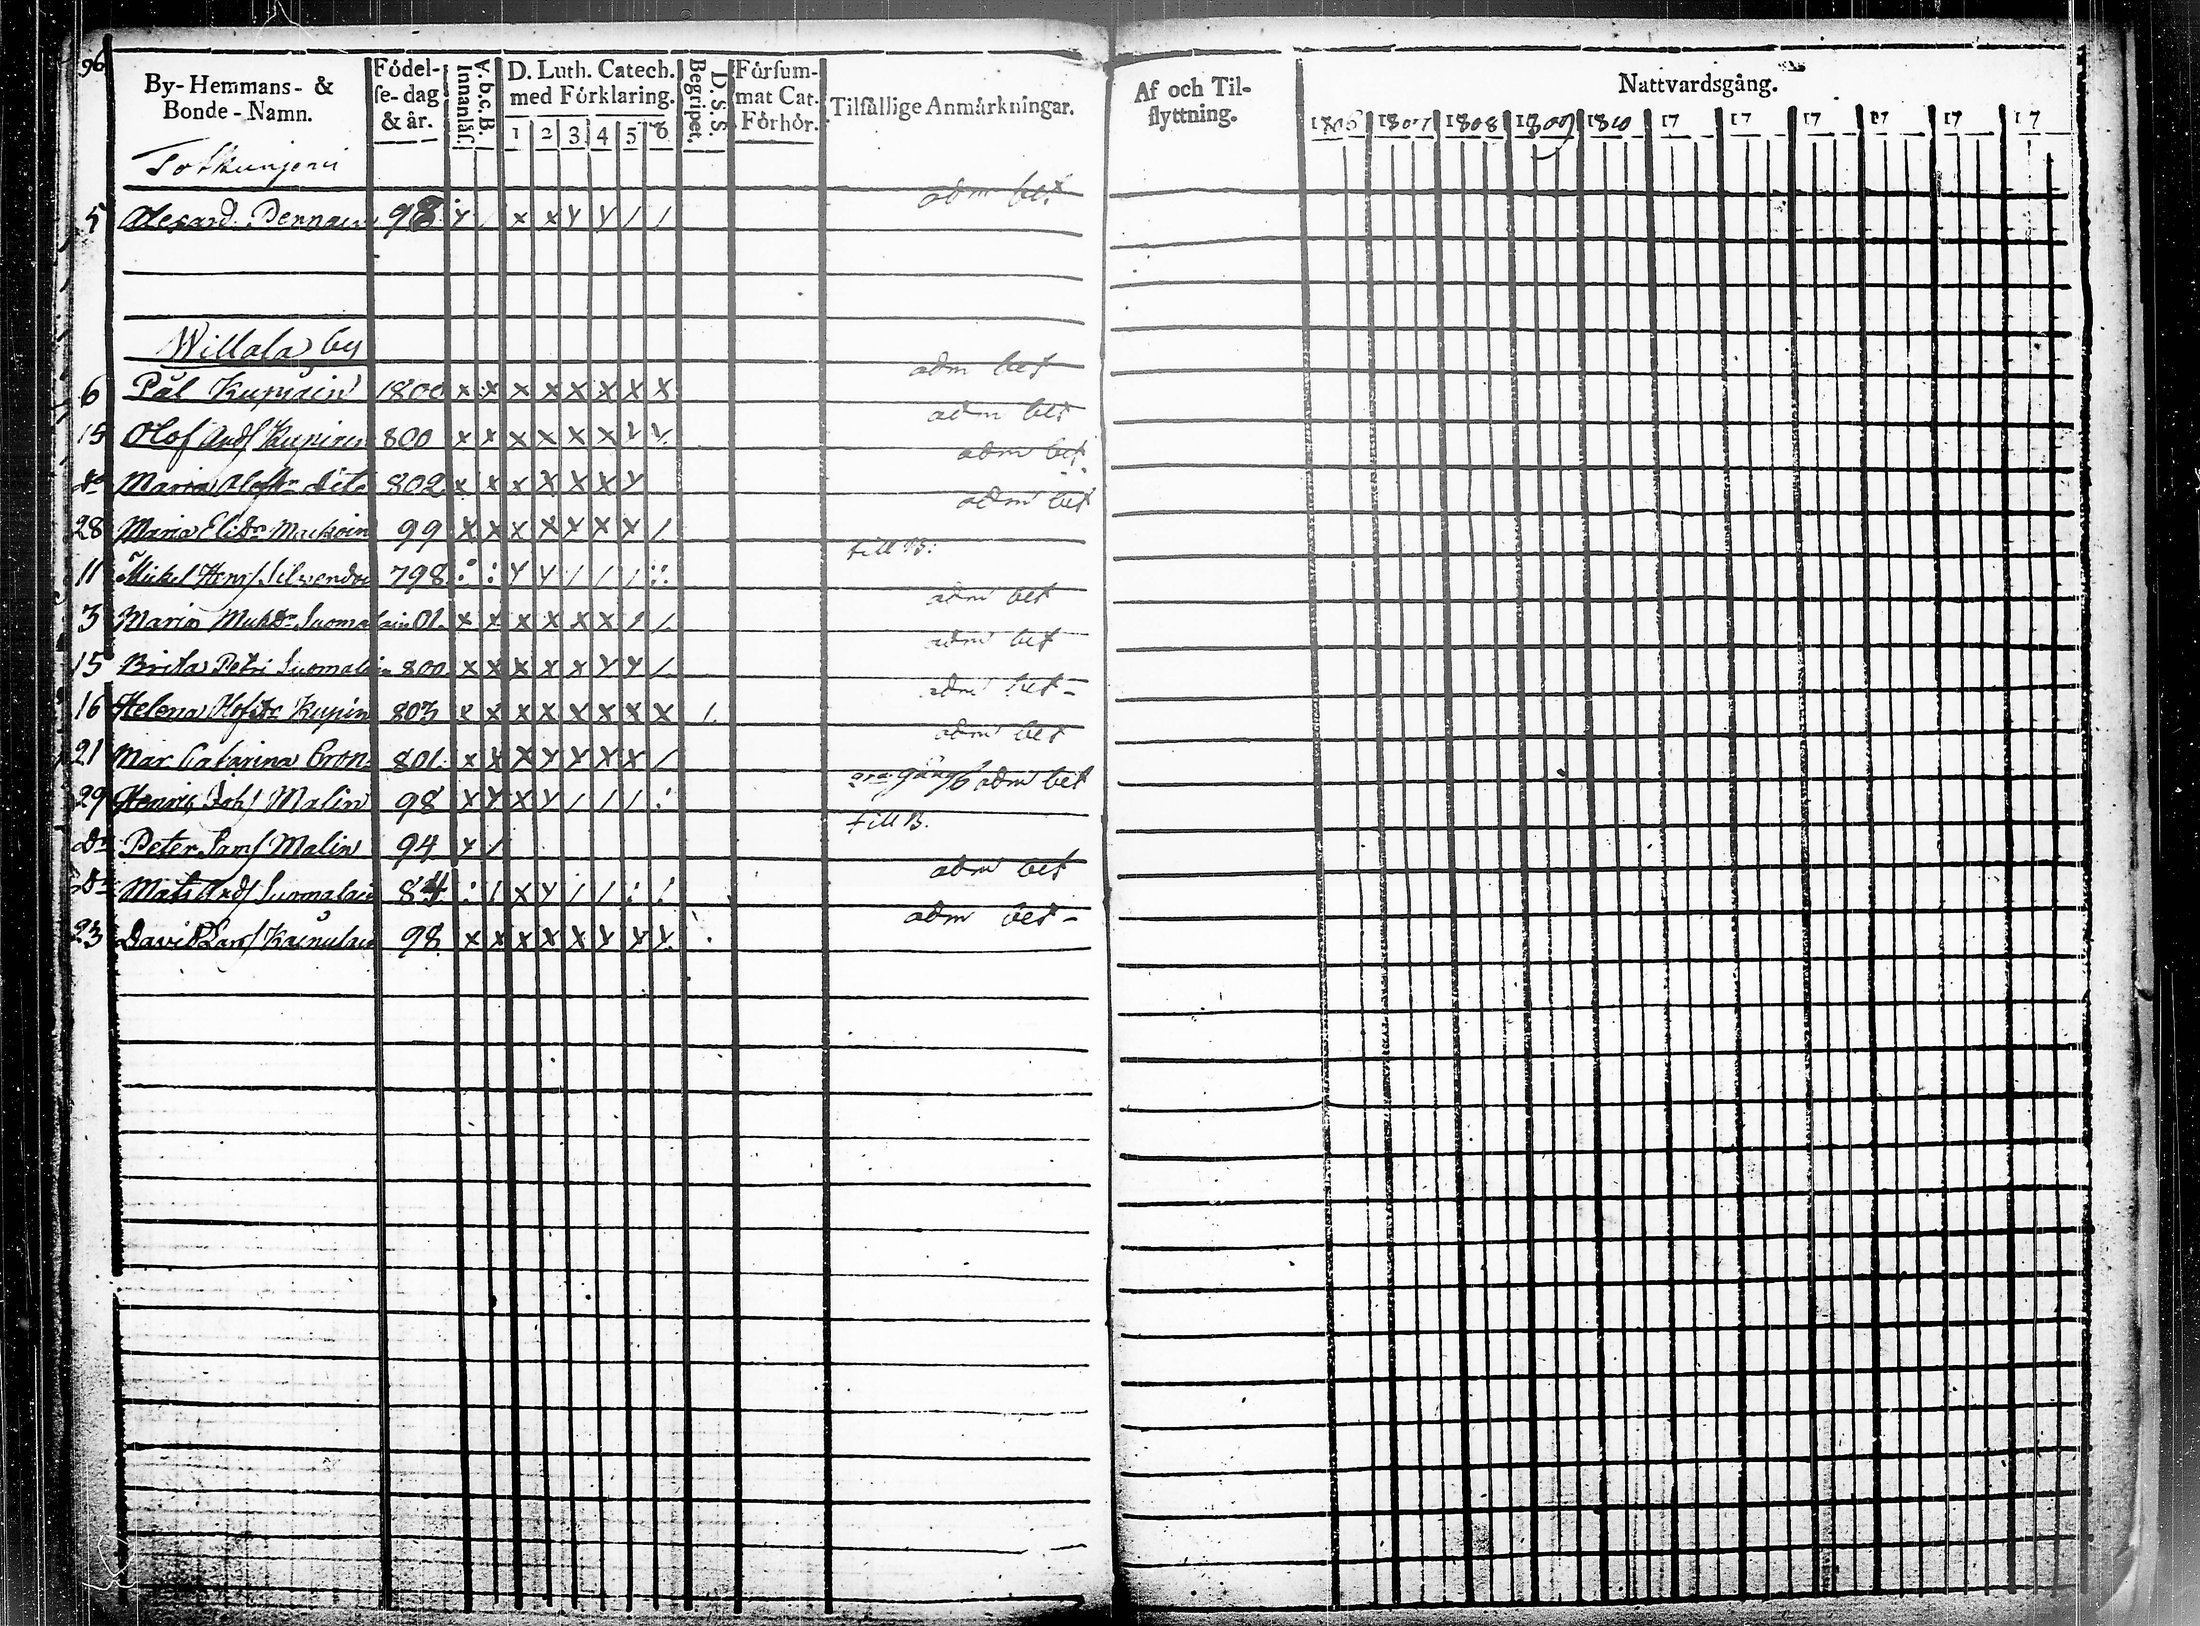 96
By-Hemmans- &
Bonde-Namn.
Födel-
se-dag
& år.
A.b.c.B.
Innanläs.
D. Luth. Catech.
med Förklaring.
1 2 3 4 5 6
D. S. S.
Begripet.
Försum-
mat Cat.
Förhör.
Tilfällige Anmärkningar.
Af och Til-
flyttning.
Nattvardsgång.
1806 1807 1808 1809 1810 17 17 17 17 17 17
adm bet
5 98 x / x x y y / /
Willala by
adm bet
6 Pål Kupiain 1800 x x x x x x x x
adm bet
15 Olof Andf Kupiain 800 x x x x x x y y
adm bet
do Maria dito 802 x x x x x x y
adm bet
28 Maria 99 x x x x x x x /
till B:
11 Mickel Henrf 798 : : y y / / / ::
adm bet
3 Maria Suomalain 01. x x x x x x / /
adm bet
15 Brita Petri Suomalain 800 x x x x x y y /
adm bet
16 Helena Kupiain 803 x x x x x x x x /
adm bet
21 Mar Catarina Cron 801 x x x y y x x /
gång adm bet
29 Henric Johf Malin 98 x x x y / / / :
till B.
do Peter Malin 94 y /
adm bet
do Mats Andf Suomalain 84 : / x y / / : :
adm bet
23 David Larsf Kainulain 98 x x x x x y y y